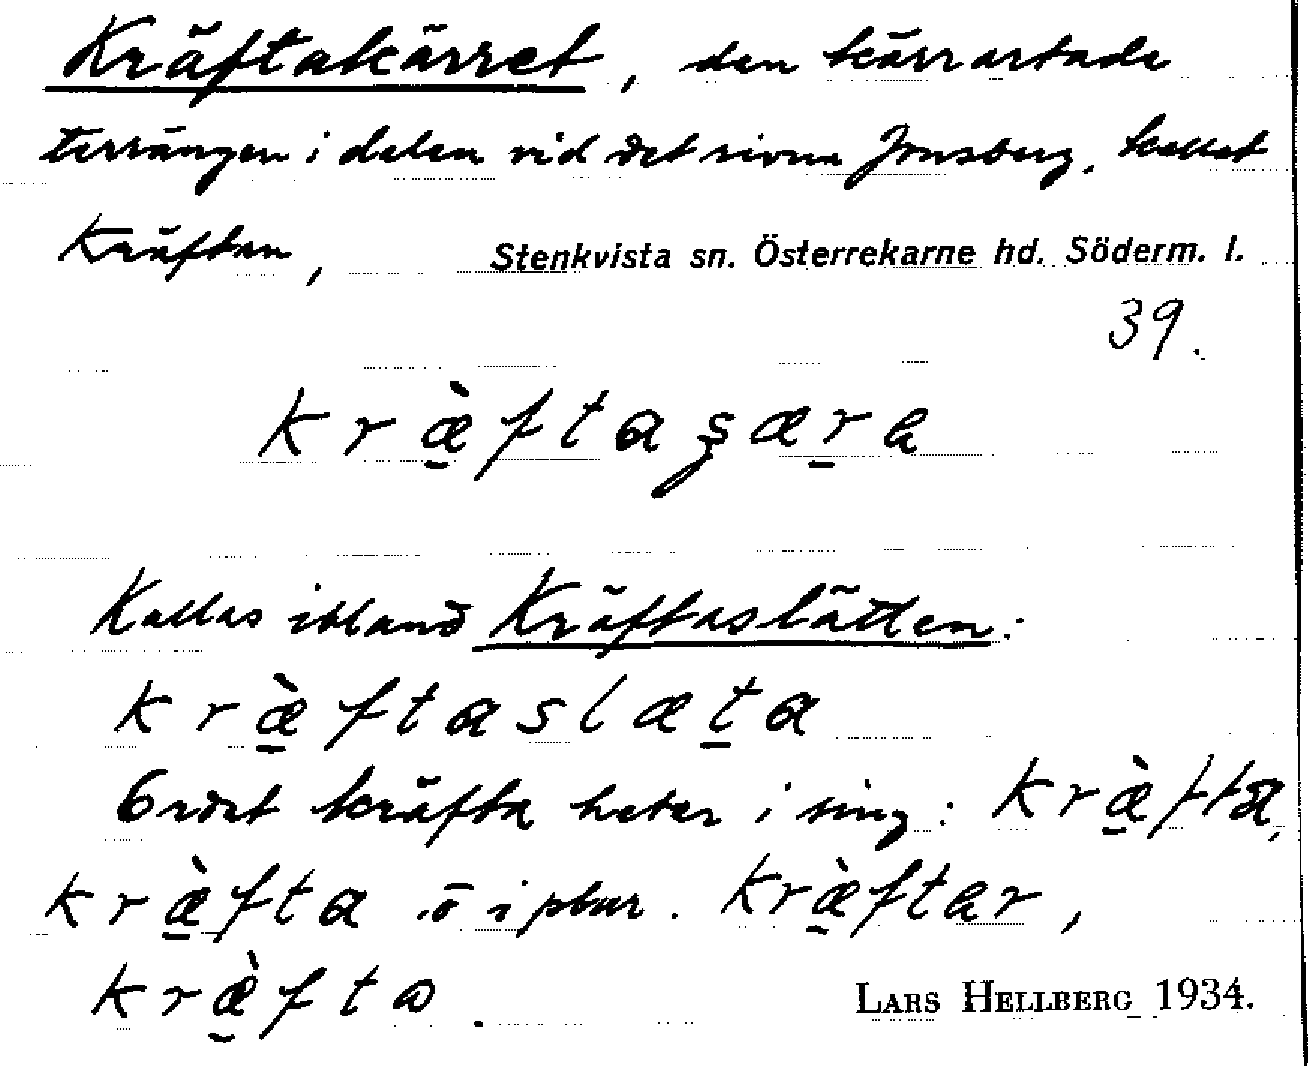 Kräftakärret, den kärrartade
terrängen i dalen vid det rivna Jonsberg, kallat
Kräftan, Stenkvista sn. Österrekarne hd. Söderm. l.
39.
kræ̀ftaʂæra
Kallas ibland Kräftaslätten:
kræ̀ftaslæta
Ordet kräfta heter i sing: kræ̀fta,
kræ̀fta o i plur. kræ̀ftar,
kræ̀fta.
LARS HELLBERG 1934.